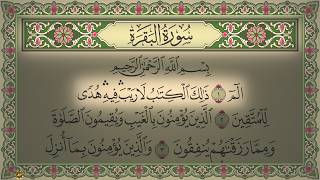 سُورَةُ الْبَقَرَةِ
بِسْمِ اللَّهِ الرَّحْمَٰنِ الرَّحِيمِ
الٓمٓ ۝١ ذَٰلِكَ الْكِتَٰبُ لَا رَيْبَ ۛ فِيهِ ۛ هُدًى
لِّلْمُتَّقِينَ ۝٢ الَّذِينَ يُؤْمِنُونَ بِالْغَيْبِ وَيُقِيمُونَ الصَّلَوٰةَ
وَمِمَّا رَزَقْنَٰهُمْ يُنفِقُونَ ۝٣ وَالَّذِينَ يُؤْمِنُونَ بِمَآ أُنزِلَ